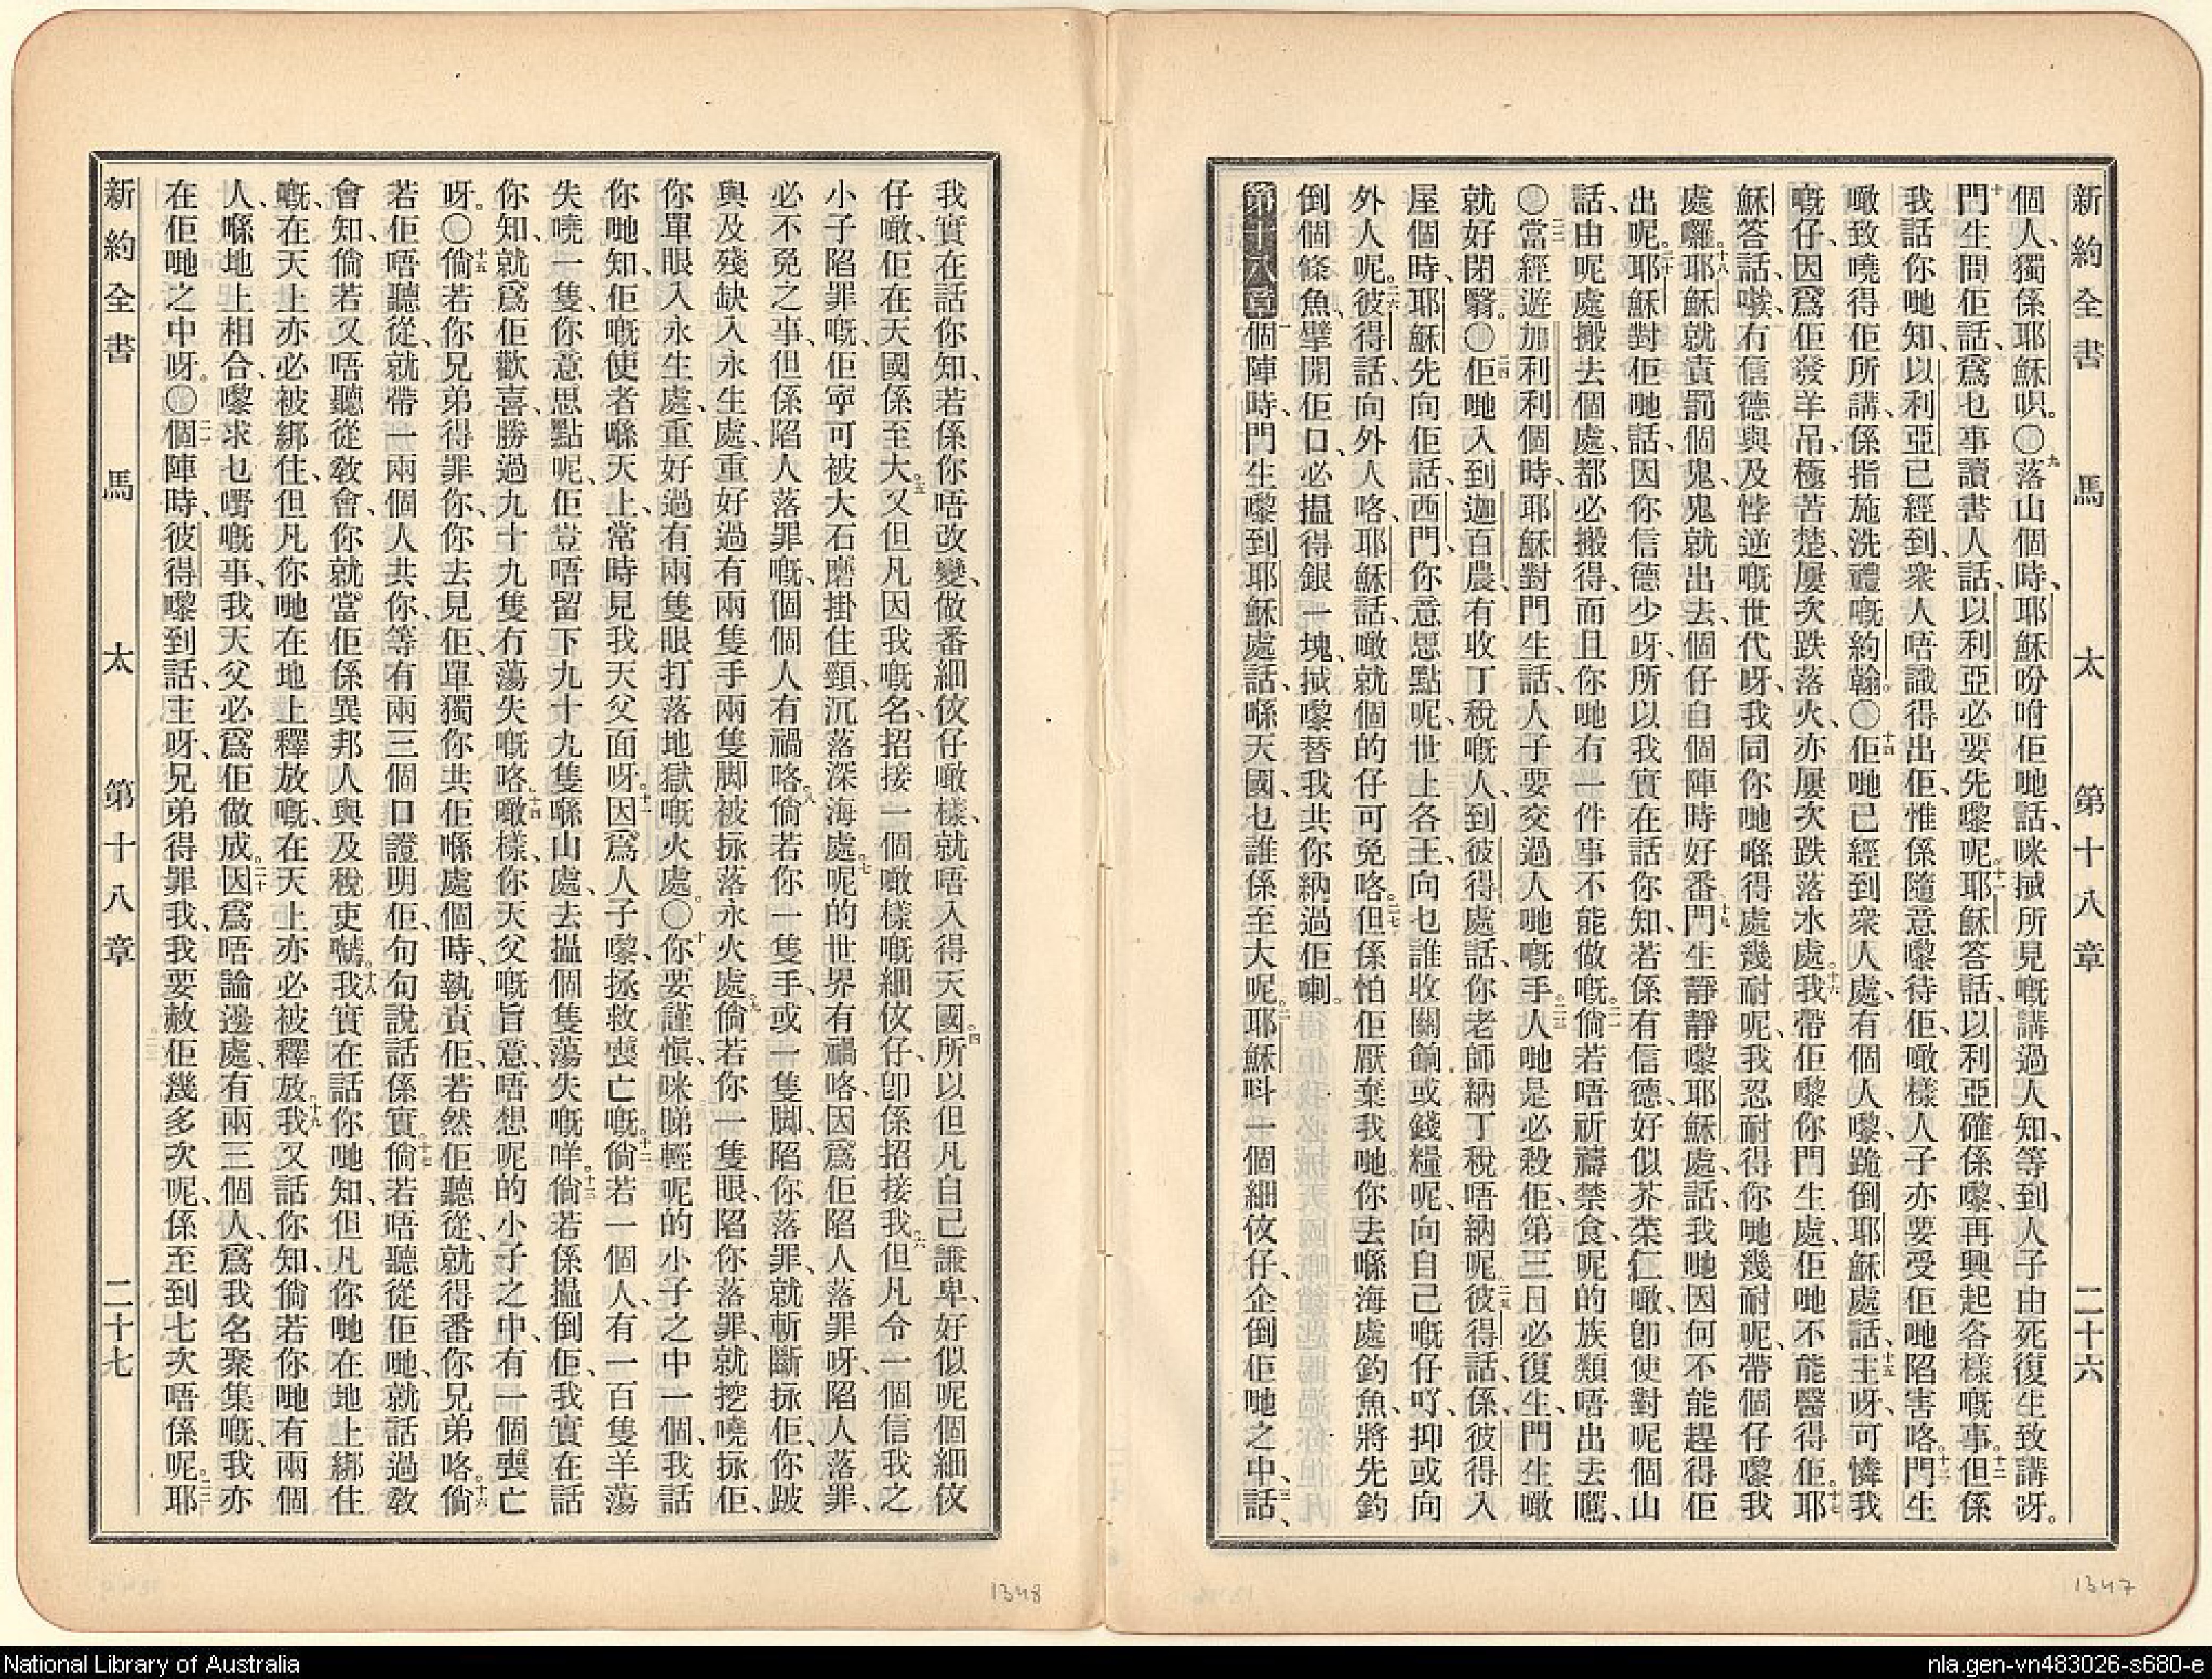 新約全書 馬太 第十八章 二十六
個人、獨係耶穌呮。〇九落山個時、耶穌吩咐佢哋話、咪搣所見嘅講過人知、等到人子由死復生致講呀。
十門生問佢話、爲乜事讀書人話、以利亞必要先嚟呢。十一耶穌答話、以利亞確係嚟、再興起各樣嘅事。十二但係
我話你哋知、以利亞已經到、衆人唔識得出佢、惟係隨意嚟待佢、噉樣人子亦要受佢哋陷害咯。十三門生
噉致曉得佢所講、係指施洗禮嘅約翰。〇十四佢哋已經到衆人處、有個人嚟、跪倒耶穌處話、十五主呀、可憐我
嘅仔、因爲佢發羊吊、極苦楚、屢次跌落火、亦屢次跌落水處。十六我帶佢嚟你門生處、佢哋不能醫得佢。十七耶
穌答話、嗾、冇信德與及悖逆嘅世代呀、我同你哋喺得處幾耐呢、我忍耐得你哋幾耐呢、帶個仔嚟我
處囉。十八耶穌就責罰個鬼、鬼就出去、個仔自個陣時好番。十九門生靜靜嚟耶穌處話、我哋因何不能趕得佢
出呢。二十耶穌對佢哋話、因你信德少呀、所以我實在話你知、若係有信德、好似芥菜仁噉、卽使對呢個山
話、由呢處搬去個處、都必搬得、而且你哋冇一件事不能做嘅。二一倘若唔祈禱禁食、呢的族類唔出去嚦、
〇二二當經遊加利利個時、耶穌對門生話、人子要交過人哋嘅手。二三人哋是必殺佢、第三日必復生、門生噉
就好閉翳。〇二四佢哋入到迦百農、有收丁稅嘅人、到彼得處話、你老師納丁稅唔納呢。二五彼得話、係、彼得入
屋個時、耶穌先向佢話、西門、你意思點呢、世上各王、向乜誰收關餉或錢糧呢、向自己嘅仔吖、抑或向
外人呢。二六彼得話、向外人咯、耶穌話、噉就個的仔可免咯。二七但係怕佢厭棄我哋。你去喺海處釣魚、將先釣
倒個條魚、擘開佢口、必搵得銀一塊、搣嚟替我共你納過佢喇。
第十八章 一個陣時、門生嚟到耶穌處話、喺天國、乜誰係至大呢。二耶穌呌一個細伩仔、企倒佢哋之中、三話、
我實在話你知、若係你唔改變、做番細伩仔噉樣、就唔入得天國。四所以但凡自己謙卑、好似呢個細伩
仔噉、佢在天國係至大。五又但凡因我嘅名、招接一個噉樣嘅細伩仔、卽係招接我。六但凡令一個信我之
小子陷罪嘅、佢寧可被大石磨掛住頸、沉落深海處。七呢的世界有禍咯、因爲佢陷人落罪呀、陷人落罪、
必不免之事、但係陷人落罪嘅、個個人有禍咯。八倘若你一隻手、或一隻脚、陷你落罪、就斬斷揼佢、你跛
與及殘缺入永生處、重好過有兩隻手兩隻脚被揼落永火處。九倘若你一隻眼、陷你落罪、就挖嘵揼佢、
你單眼入永生處、重好過有兩隻眼打落地獄嘅火處。〇十你要謹愼、咪睇輕呢的小子之中一個、我話
你哋知、佢嘅使者喺天上、常時見我天父面呀。十一因爲人子嚟、拯救喪亡嘅。十二倘若一個人、有一百隻羊、蕩
失嘵一隻、你意思點呢、佢豈唔留下九十九隻喺山處、去搵個隻蕩失嘅咩。十三倘若係搵倒佢、我實在話
你知、就爲佢歡喜、勝過九十九隻冇蕩失嘅咯。十四噉樣、你天父嘅旨意、唔想呢的小子之中、有一個喪亡
呀。〇十五倘若你兄弟得罪你、你去見佢、單獨你共佢喺處個時、執責佢、若然佢聽從、就得番你兄弟咯。十六倘
若佢唔聽從、就帶一兩個人共你、等有兩三個口證明佢、句句說話係實。十七倘若唔聽從佢哋、就話過敎
會知、倘若又唔聽從敎會、你就當佢係異邦人與及稅吏嚹。十八我實在話你哋知、但凡你哋在地上綁住
嘅、在天上亦必被綁住、但凡你哋在地上釋放嘅、在天上亦必被釋放。十九我又話你知、倘若你哋有兩個
人、喺地上相合、嚟求乜嘢嘅事、我天父必爲佢做成。二十因爲唔論邊處、有兩三個人、爲我名聚集嘅、我亦
在佢哋之中呀。〇二一個陣時、彼得嚟到話、主呀、兄弟得罪我、我要赦佢幾多次呢、係至到七次唔係呢。二二耶
新約全書 馬太 第十八章 二十七
1348
1347
National Library of Australia
nla.gen-vn483026-s680-e